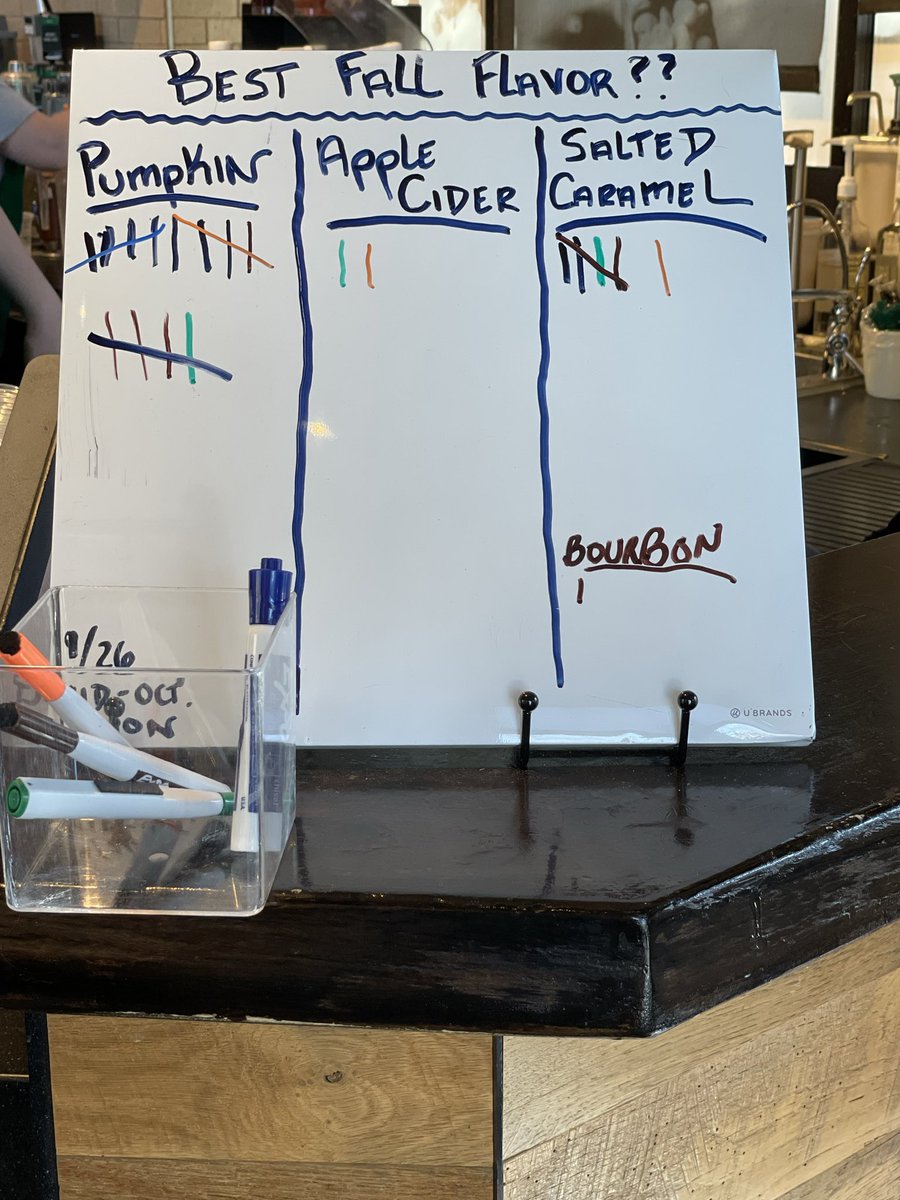 BEST FALL FLAVOR??
PUMPKIN
APPLE CIDER
SALTED CARAMEL
BOURBON
9/26
-OCT.
U BRANDS